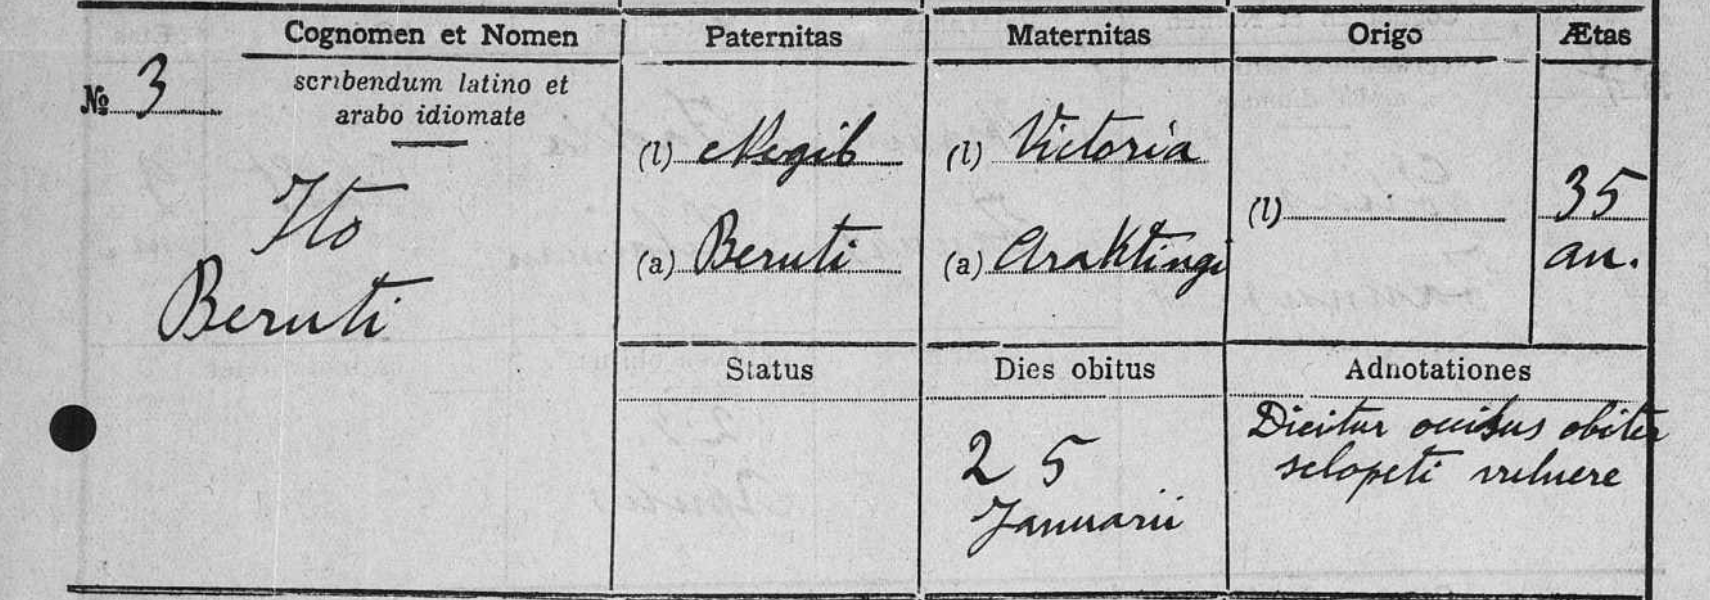 Cognomen et Nomen
Paternitas
Maternitas
Origo
Ætas
№ 3
scribendum latino et
arabo idiomate
Ito
Beruti
(l) Negib
(a) Beruti
(l) Victoria
(a) Araktingi
(l)
35
an.
Status
Dies obitus
Adnotationes
25
Januarii
Dicitur occisus obiter
sclopeti vulnere